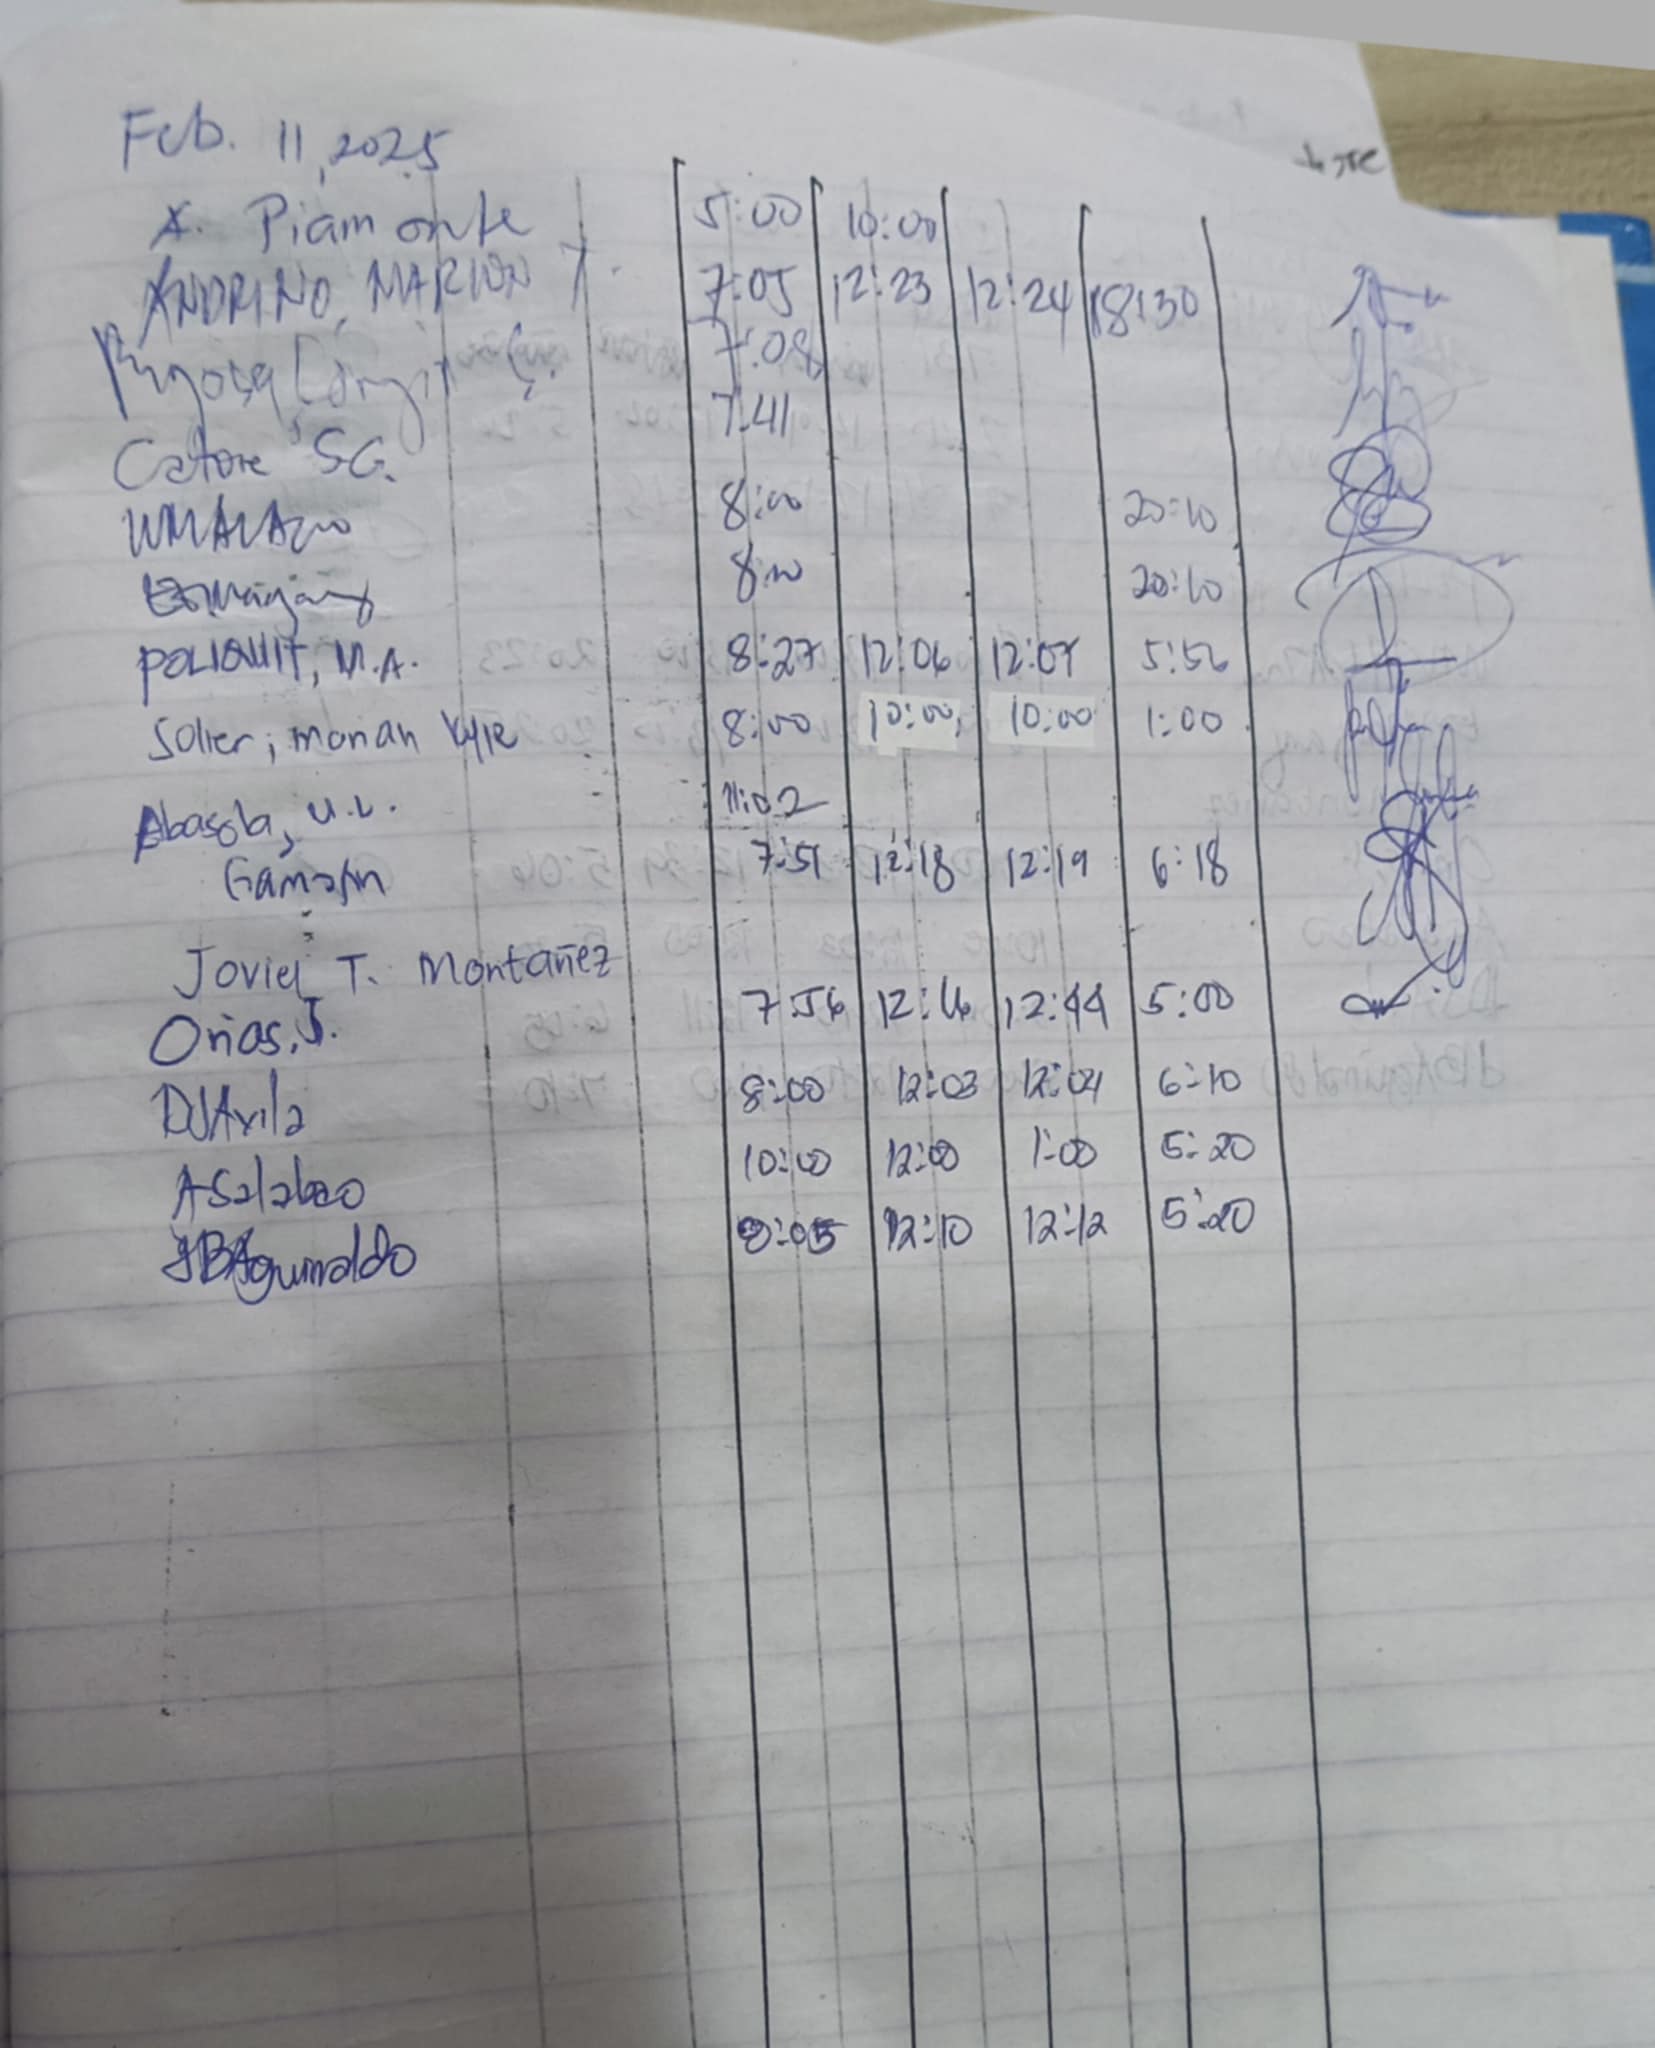 Feb. 11, 2025
X. Piamonte 5:00 10:00
ANDRINO, MARION T. 7:05 12:23 12:24 18:30
7:08
Catore SG. 7:41
UMALI 8:00 20:10
8:00 20:10
POLIQUIT, M.A. 8:27 12:06 12:07 5:56
Solier, Mariah Kyle 8:00 10:00 10:00 1:00
Abasola, U.L. 11:02
Gamotin 7:51 12:18 12:19 6:18
Joviel T. Montañez
Oñas, J. 7:56 12:16 12:44 5:00
DJAvila 8:00 12:03 12:04 6:10
ASalabao 10:00 12:00 1:00 5:20
JBAguinaldo 8:05 12:10 12:12 5:20